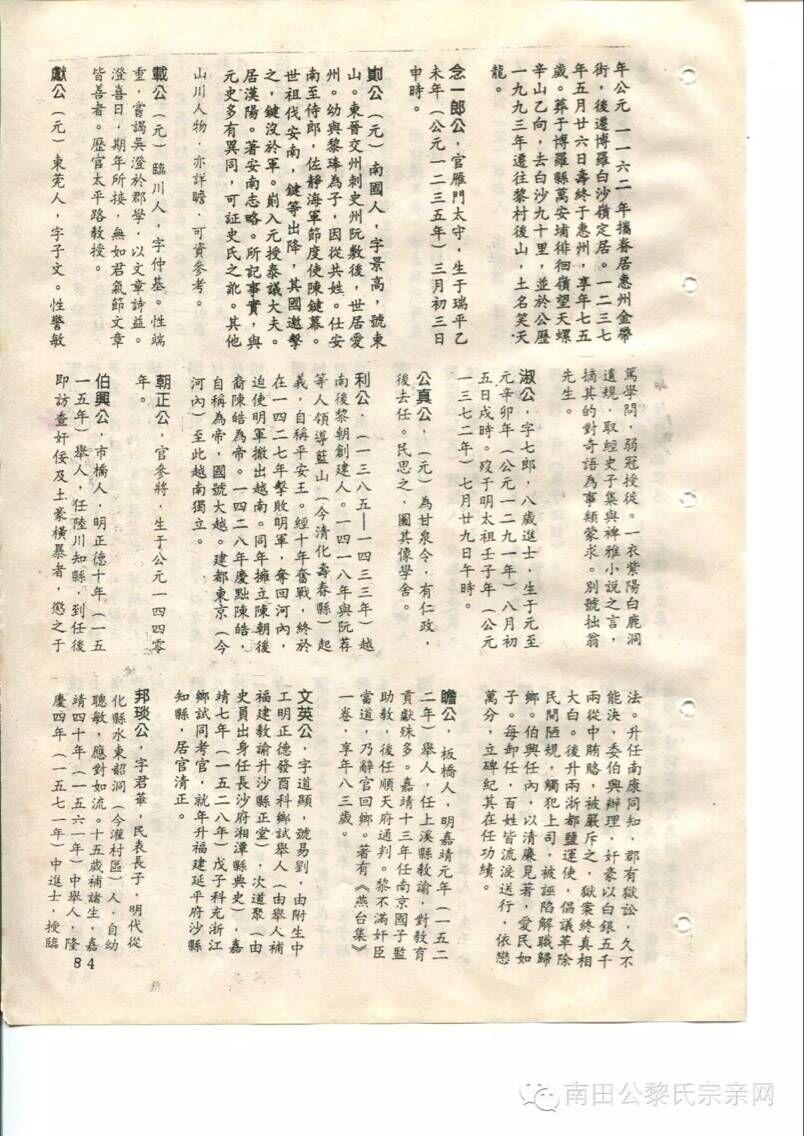 年公元一一六二年攜眷居惠州金帶
街，後遷博羅白沙嶺定居。一二三七
年五月廿六日壽終于惠州，享年七五
歲。葬于博羅縣萬安埔徘徊嶺望天螺
辛山乙向，去白沙九十里，並於公歷
一九九三年遷往黎村後山，土名笑天
龍。
念一郎公，官雁門太守，生于瑞平乙
未年（公元一二三五年）三月初三日
申時。
崱公（元）南國人，字景高，號東
山。東晉交州刺史州阮敷後，世居愛
州。幼與黎琫為子，因從共姓。仕安
南至侍郎，佐靜海軍節度使陳鍵幕。
世祖伐安南，鍵等出降，其國邀擊
之，鍵沒於軍。崱入元授泰議大夫。
居漢陽。著安南志略。所記事實，與
元史多有異同，可証史氏之訛。其他
山川人物，亦詳瞻，可資參考。
載公（元）臨川人，字仲基。性端
重，嘗謁吳澄於郡學，以文章詩益。
澄喜日，期年所接，無如君氣節文章
皆善者。歷官太平路教授。
獻公（元）東莞人，字子文。性警敏
篤學問，弱冠授徒。一衣紫陽白鹿洞
遺規，取經史子集與裨雅小說之言，
摘其的對奇語為事類蒙求。別號拙翁
先生。
淑公，字七郎，八歲進士，生于元至
元辛卯年（公元一二九一年）八月初
五日戌時。歿于明太祖壬子年（公元
一三七二年）七月廿九日午時。
公真公，（元）為甘泉令，有仁政，
後去任。民思之，圖其像學舍。
利公，（一三八五—一四三三年）越
南後黎朝創建人。一四一八年與阮荐
等人領導藍山（今清化壽春縣）起
義，自稱平安王。經十年奮戰，終於
在一四二七年擊敗明軍，奪回河內，
迫使明軍撤出越南。同年擁立陳朝後
裔陳皓為帝。一四二八年慶點陳皓，
自稱為帝，國號大越。建都東京（今
河內）至此越南獨立。
朝正公，官參將，生于公元一四四零
年。
伯興公，市橋人，明正德十年（一五
一五年）舉人，任陸川知縣，到任後
即訪查奸佞及土豪橫暴者，懲之于
法。升任南康同知，郡有獄訟，久不
能決，委伯興辦理，奸豪以白銀五千
兩從中賄賂，被嚴斥之，獄案終真相
大白。後升兩浙都鹽運使，倡議革除
民間陋規，觸犯上司，被誣陷解職歸
鄉。伯興任內，以清廉見著，愛民如
子。每卸任，百姓皆流淚送行，依戀
萬分，立碑紀其在任功績。
瞻公，板橋人，明嘉靖元年（一五二
二年）舉人，任上溪縣教諭，對教育
貢獻殊多。嘉靖十三年任南京國子監
助教，後任順天府通判。黎不滿奸臣
當道，乃辭官回鄉。著有《燕台集》
一卷，享年八三歲。
文英公，字道顯，號易劉，由附生中
工明正德發酉科鄉試舉人（由舉人補
福建教諭升沙縣正堂），次道聚（由
史員出身任長沙府湘潭縣典史），嘉
靖七年（一五二八年）戊子科充浙江
鄉試同考官，就年升福建延平府沙縣
知縣，居官清正。
邦琰公，字君華，民表長子，明代從
化縣水東韶洞（今灌村區）人，自幼
聰敏，應對如流。十五歲補諸生，嘉
靖四十年（一五六一年）中舉人，隆
慶四年（一五七一年）中進士，授臨
84
南田公黎氏宗亲网